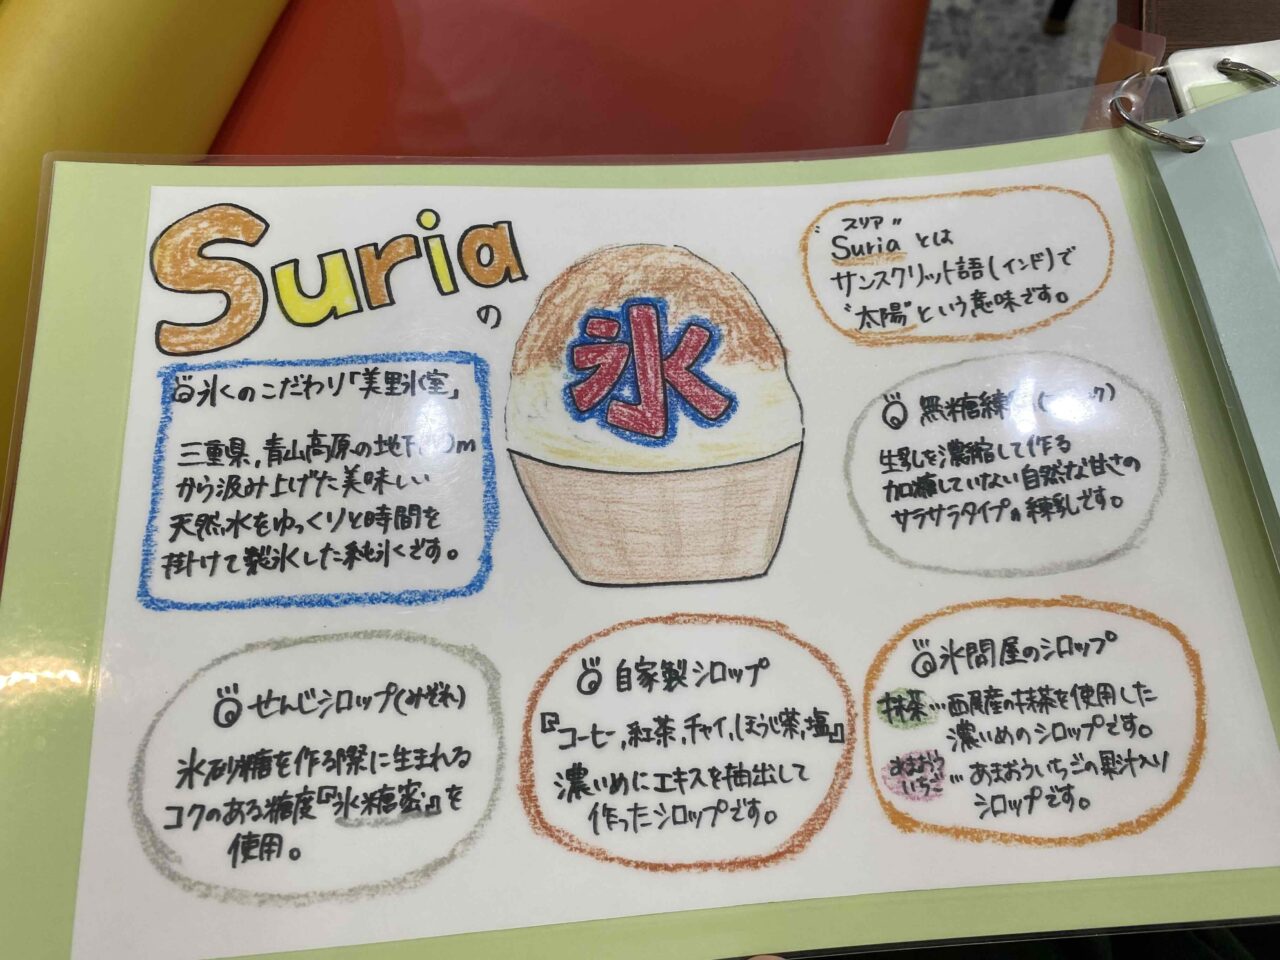 Suriaの
氷
"スリア"
Suria とは
サンスクリット語(インド)で
"太陽"という意味です。
氷のこだわり「美野氷室」
三重県,青山高原の地下
から汲み上げた美味しい
天然水をゆっくりと時間を
掛けて製氷した純氷です。
無糖練
生乳を濃縮して作る
加糖していない自然な甘さの
サラサラタイプの練乳です。
せんじシロップ(みぞれ)
氷砂糖を作る際に生まれる
コクのある糖度『氷糖蜜』を
使用。
自家製シロップ
『コーヒー,紅茶,チャイ,ほうじ茶,塩』
濃いめにエキスを抽出して
作ったシロップです。
氷問屋のシロップ
抹茶…西尾産の抹茶を使用した
濃いめのシロップです。
あまおういちご…あまおういちごの果汁入り
シロップです。